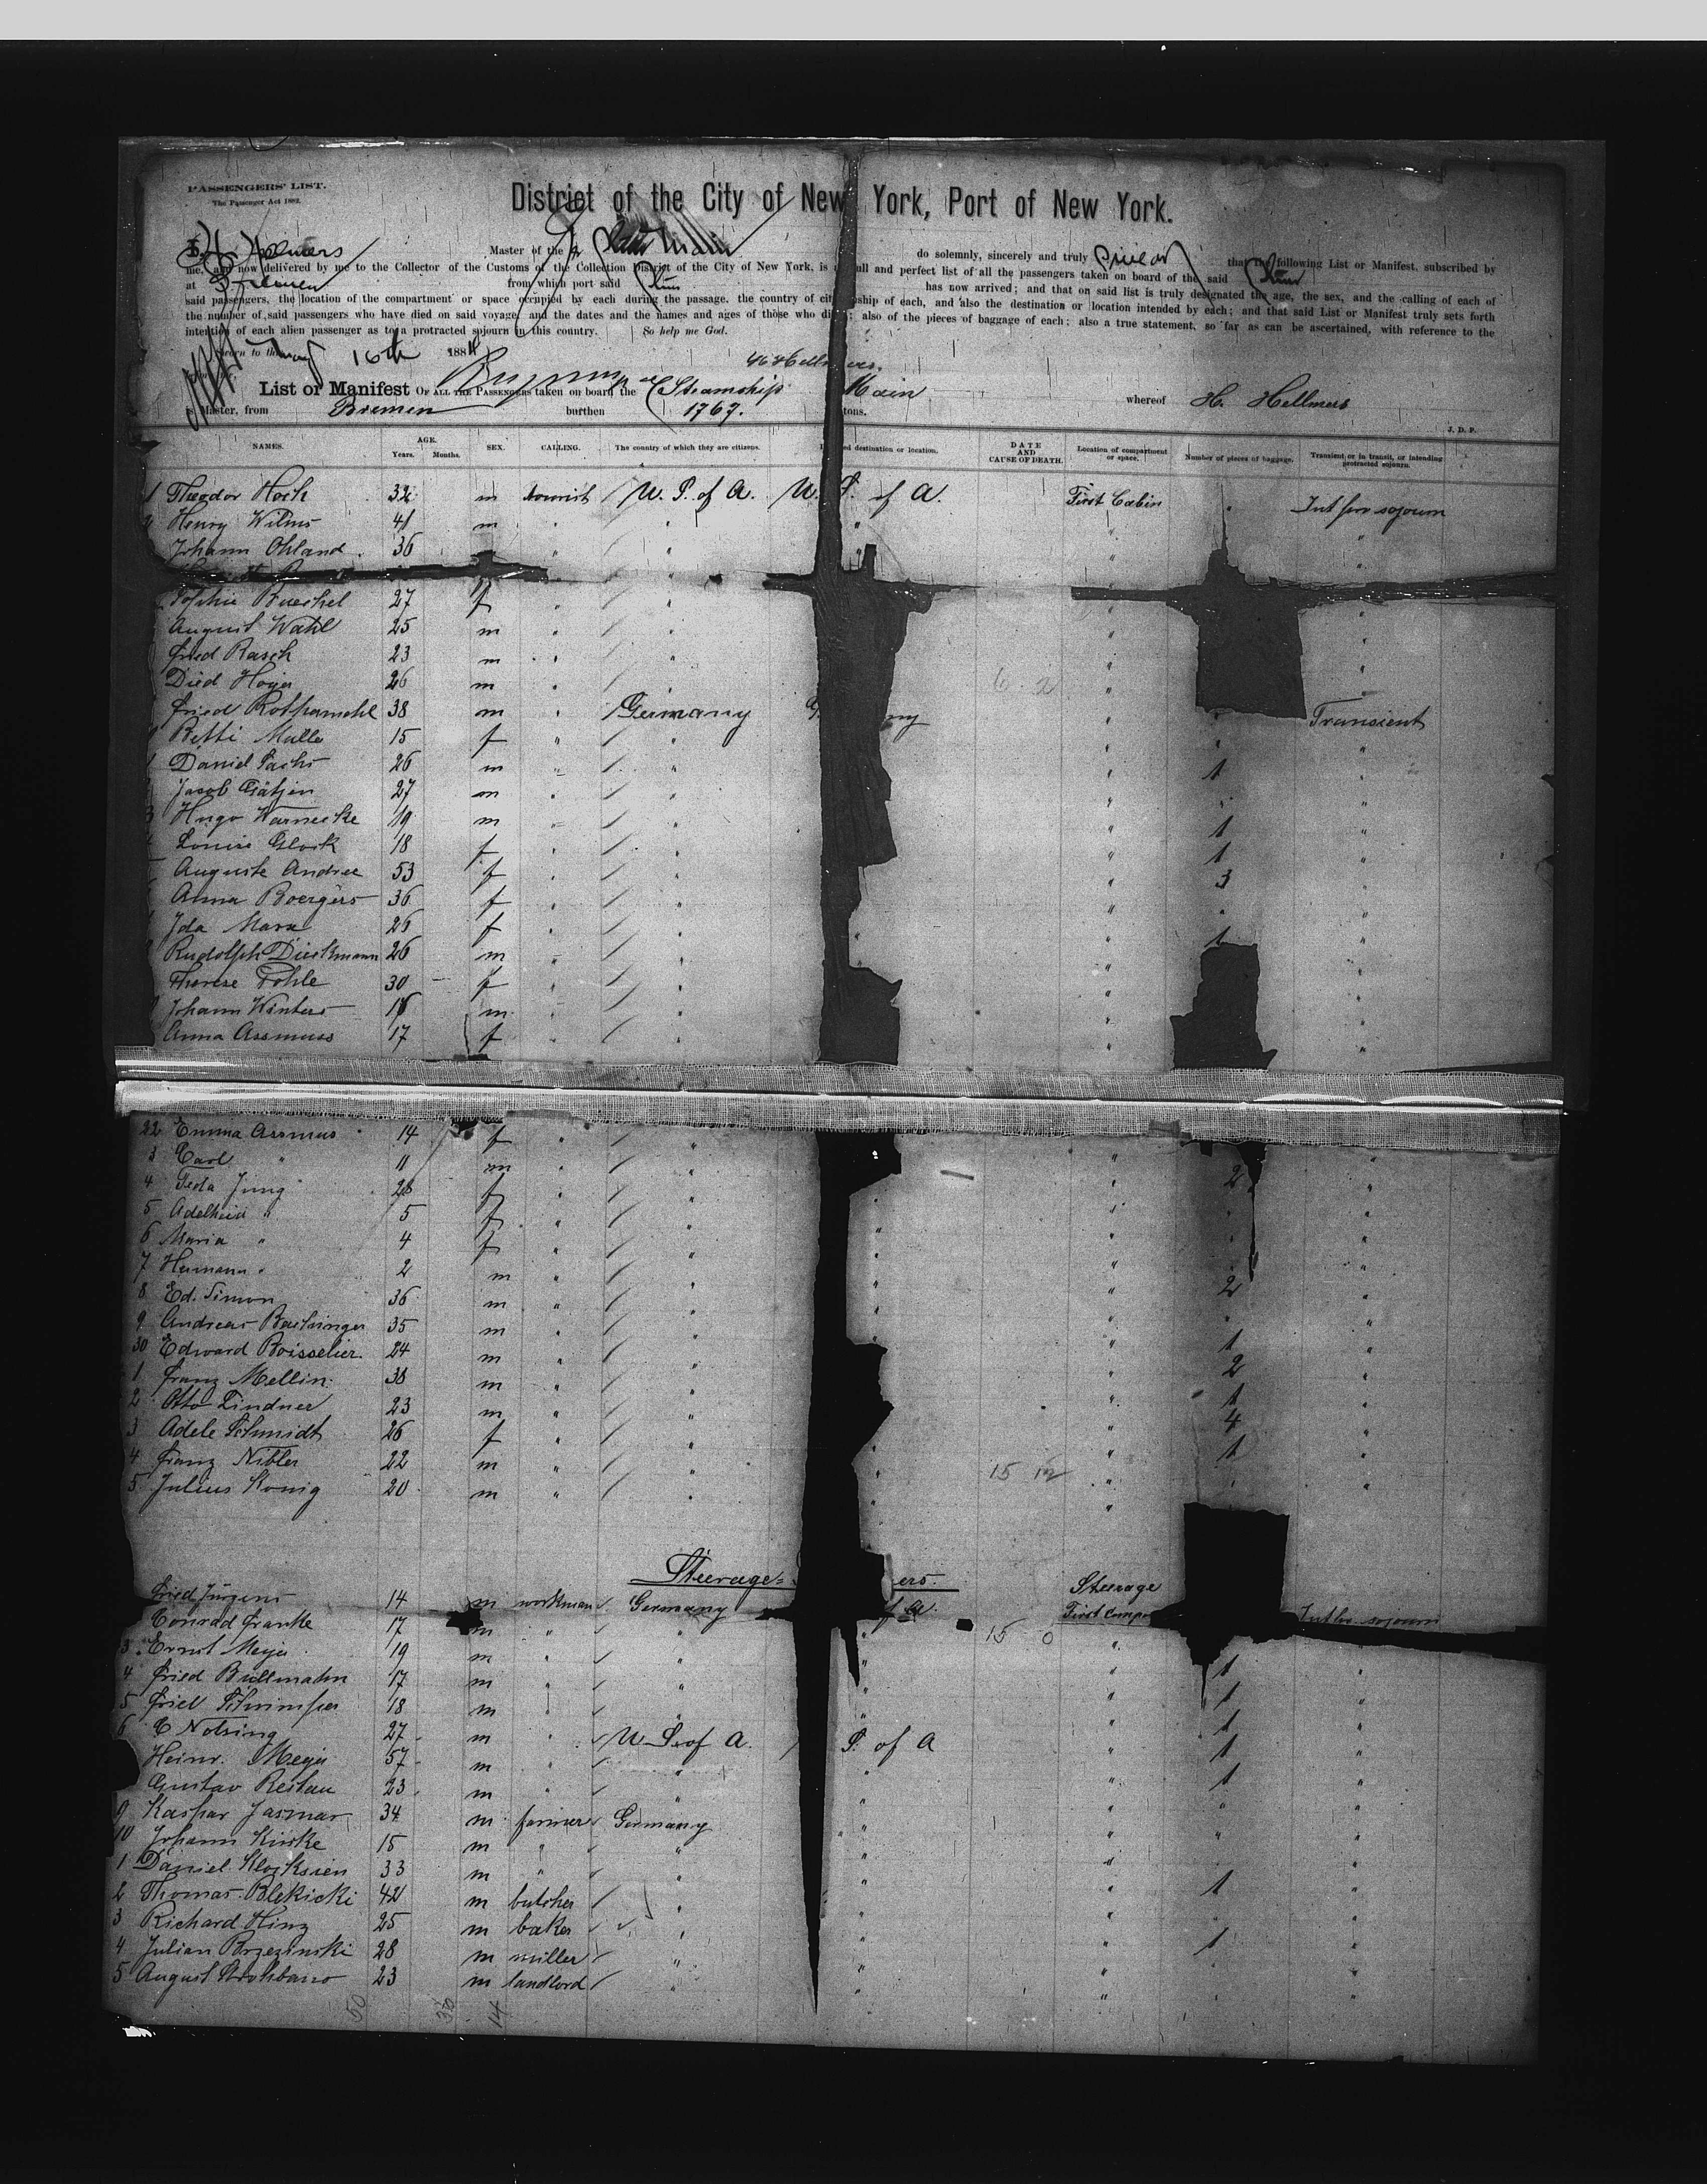 PASSENGERS' LIST.
The Passenger Act 1882.
District of the City of New York, Port of New York.
I, H. Hellmers Master of the Main do solemnly, sincerely and truly swear that the following List or Manifest, subscribed by
me, and now delivered by me to the Collector of the Customs of the Collection District of the City of New York, is a full and perfect list of all the passengers taken on board of the said
at Bremen from which port said has now arrived; and that on said list is truly designated the age, the sex, and the calling of each of
said passengers, the location of the compartment or space occupied by each during the passage, the country of citizenship of each, and also the destination or location intended by each; and that said List or Manifest truly sets forth
the number of said passengers who have died on said voyage, and the dates and the names and ages of those who died; also of the pieces of baggage of each; also a true statement, so far as can be ascertained, with reference to the
intention of each alien passenger as to a protracted sojourn in this country. So help me God.
Sworn to this May 16th 188
List or Manifest OF ALL THE PASSENGERS taken on board the Steamship Main whereof H. Hellmers
is Master, from Bremen burthen 1767. tons.
J. D. P.
NAMES. AGE. Years. Months. SEX. CALLING. The country of which they are citizens. destination or location. DATE AND CAUSE OF DEATH. Location of compartment or space. Number of pieces of baggage. Transient or in transit, or intending protracted sojourn.
1 Theodor Hoch 32 m tourist U. S. of A. U. S. of A. First Cabin Int pro sojourn
2 Henry Wilms 41 m " " " " "
Johann Ohland 36 " " " " "
Sophie Bueschel 27 f " " " "
August Wahl 25 m " " " "
Fried Rasch 23 m " " " "
Died Hoyer 26 m " " " "
Fried Rothamehl 38 m " Germany ny " Transient
Betti Muller 15 f " " " "
1 Daniel Sachs 26 m " " " 1 "
Jacob Gätjen 27 m " " " "
3 Hugo Warnecke 19 m " " " 1 "
Louise Glock 18 f " " " 1 "
Auguste Andree 53 f " " " 3 "
Anna Boergers 36 f " " " "
Ida Marx 26 f " " " 1 "
Rudolph Dieckmann 26 m " " " "
Therese Pohle 30 f " " " "
Johann Winters 16 m " " " "
Anna Assmuss 17 f " " " "
22 Emma Assmus 14 f " " " "
3 Carl " 11 m " " " 2 "
4 Jung 28 f " " " "
5 Adelheid " 5 f " " " "
6 Maria " 4 f " " " "
7 Hermann " 2 m " " " 2 "
8 Ed. Simon 36 m " " " "
9 Andreas Bachinger 35 m " " " 1 "
30 Edward Boisselier 24 m " " " 2 "
1 Franz Mellin 38 m " " " 1 "
2 Otto Lindner 23 m " " " 4 "
3 Adele Schmidt 26 f " " " 1 "
4 Franz Nibler 22 m " " " "
5 Julius König 20 m " " " "
15 12
Steerage= ers.
Fried Jürgens 14 m workman Germany of A. Steerage First Comp Int pro sojourn
Conrad Franke 17 m " " " 15 0 "
3 Ernst Meyer 19 m " " " " 1 "
4 Fried Büllmahn 17 m " " " " 1 "
5 Fried Schrimper 18 m " " " " 1 "
6 C Nolsing 27 m " U. S. of A. S. of A " 1 "
Heinr. Meyer 57 m " " " " 1 "
Gustav Restau 23 m " " " " "
9 Kaspar Jasmar 34 m farmer Germany " " "
10 Johann Kinke 15 m " " " " "
1 Daniel Klocksien 33 m " " " " 1 "
2 Thomas Blekicki 42 m butcher " " " "
3 Richard Hinz 25 m baker " " " 1 "
4 Julian Brzezinski 28 m miller " " " "
5 August 23 m landlord " " "
50 36 14